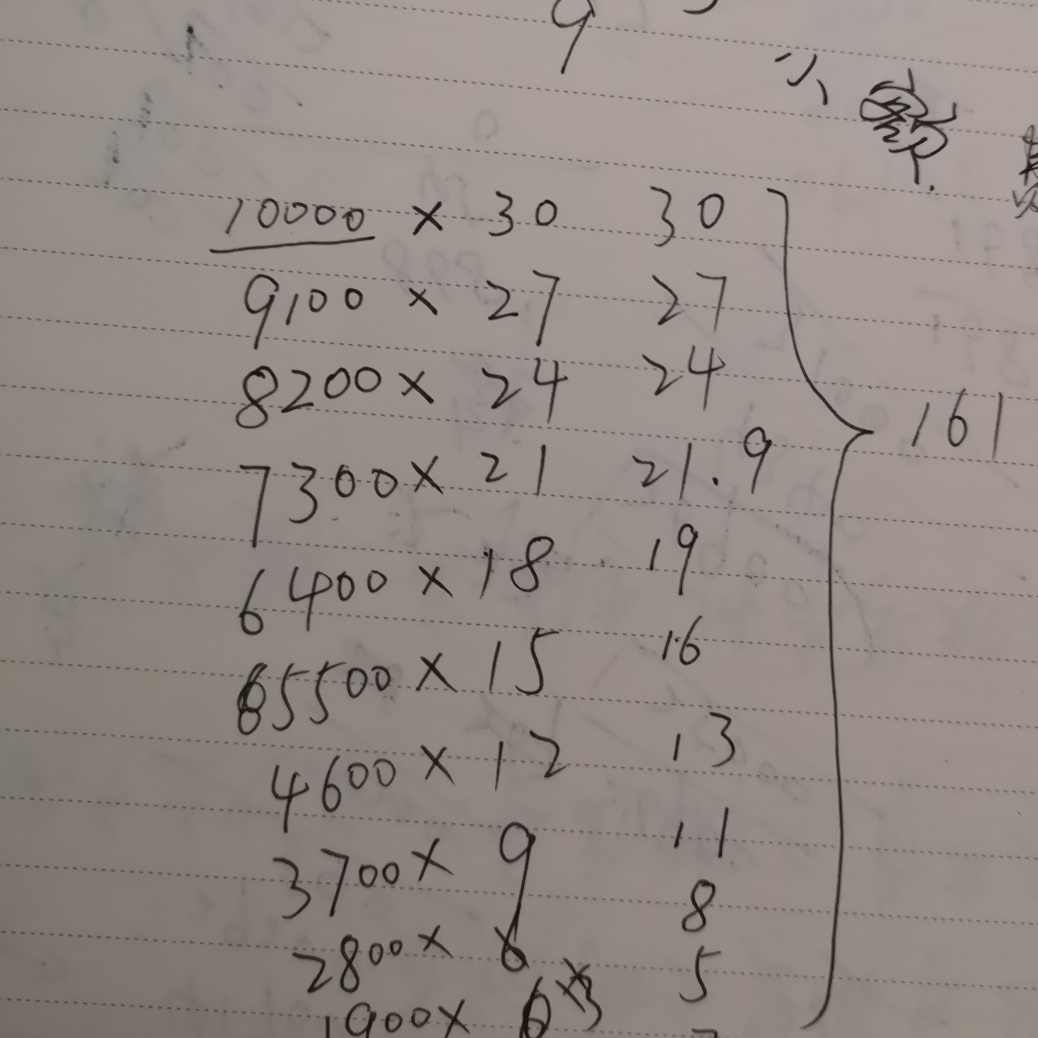 9
小
10000 × 30 30
9100 × 27 27
8200 × 24 24
7300 × 21 21.9
161
6400 × 18 19
5500 × 15 16
4600 × 12 13
3700 × 9 11
2800 × 6 8
1900 × 3 5